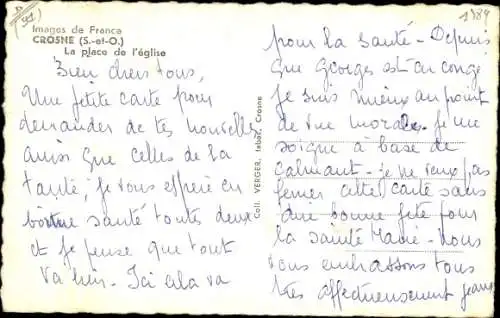 D
(91)
1984
Images de France
CROSNE (S.-et-O.)
La place de l'église
Bien chers tous,
Une petite carte pour
demander de tes nouvelles
ainsi que celles de la
tante, je vous espère en
bonne santé toutes deux
et je pense que tout
va bien. Ici cela va
Coll. VERGER, tabac, Crosne
pour la santé - Depuis
que Georges est en congé
je suis mieux au point
de vue morale. je me
soigne à base de
Calmant - je ne veux pas
fermer cette carte sans
une bonne fête pour
la sainte Marie - Nous
vous embrassons tous
très affectueusement Jeanne